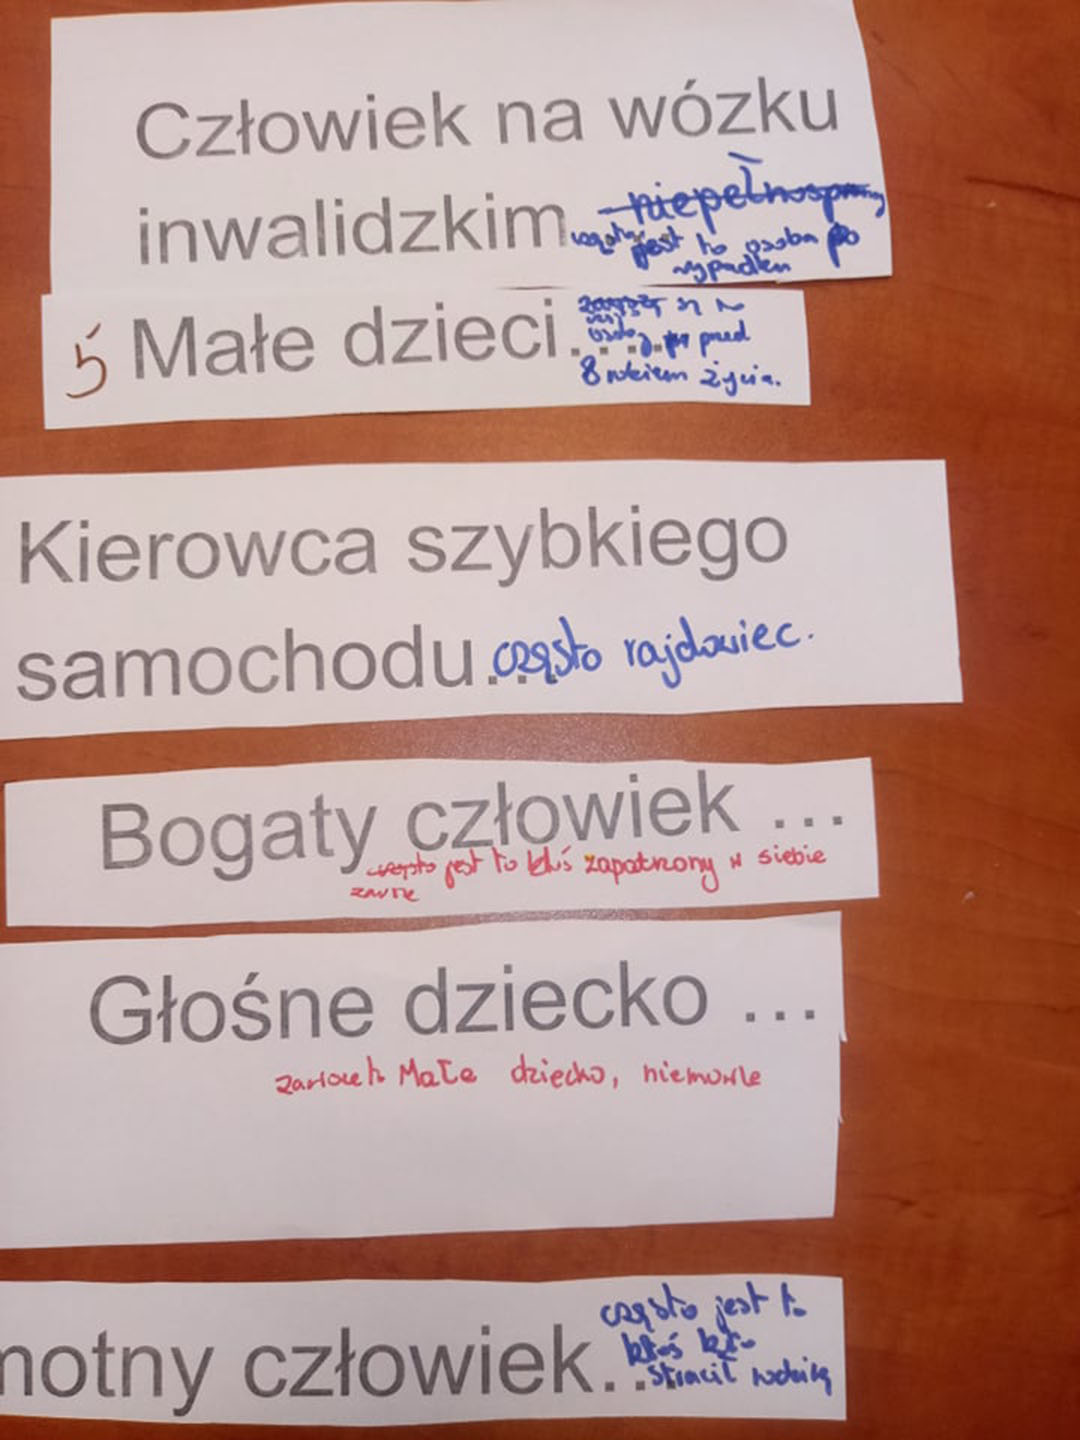 Człowiek na wózku
inwalidzkim niepełnosprawny
często jest to osoba po
wypadku
5 Małe dzieci...
osoby przed
8 rokiem życia.
Kierowca szybkiego
samochodu... często rajdowiec.
Bogaty człowiek ...
często jest to ktoś zapatrzony w siebie
Głośne dziecko ...
Małe dziecko, niemowle
motny człowiek... często jest to
ktoś kto
stracił rodzinę